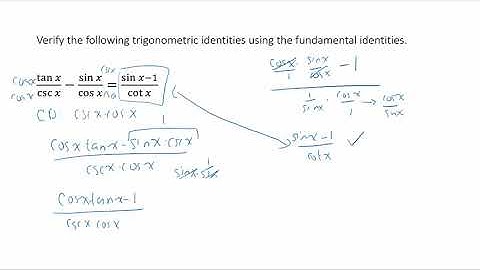 Verify the following trigonometric identities using the fundamental identities.
cosx/cosx tan x/csc x − sin x/cos x csx/ = sin x−1/cot x
CD cscx cosx
cosx tanx − sinx · cscx / cscx · cosx 1
sinx · 1/sinx
cosx tanx − 1 / cscx cosx
cosx/1 · sinx/cosx − 1
1/sinx · cosx/1 → cosx/sinx
sinx − 1 / cotx ✓